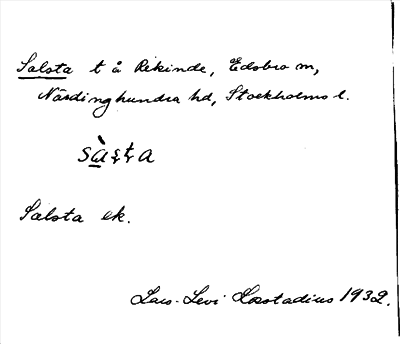 Salsta t å Rikinde, Edsbro sn,
Närdinghundra hd, Stockholms l.
sàșța
Salsta ek.
Lars-Levi Læstadius 1932.